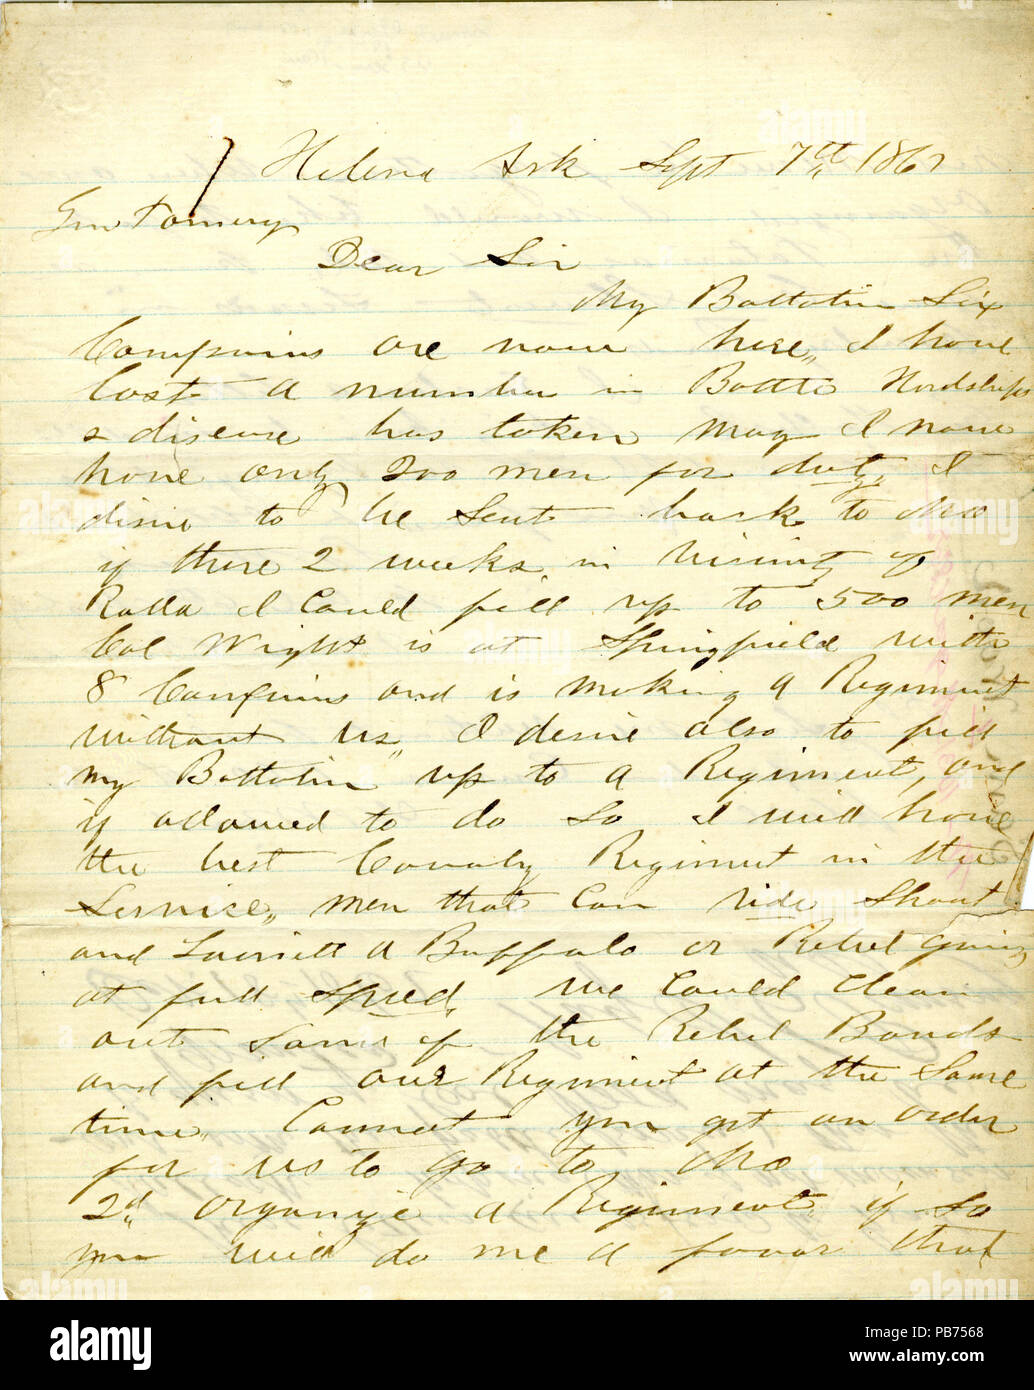 Helena Ark Sept 7th 1862
Dear Sir
My Battolin Six
Companies are now here, I have
lost a number in Battle Hardships
& disease has taken many I now
have only 200 men for duty, I
disire to be sent back to Mo
if there 2 weeks in vicinity of
Rolla I could fill up to 500 men
Col Wright is at Springfield with
8 Companies and is making a Regiment
without us, I desire also to fill
my Battolin up to a Regiment, and
if allowed to do so I will have
the best Cavaly Regiment in the
Service, men that can ride Shoot
and a Buffalo or Rebel going
at full speed, we could clean
out some of the Rebel Bands
and fill our Regiment at the same
time, Cannot you get an order
for us to go to Mo
2d, organize a Regiment, if so
you will do me a favor that
alamy
Image ID: PB7568
www.alamy.com